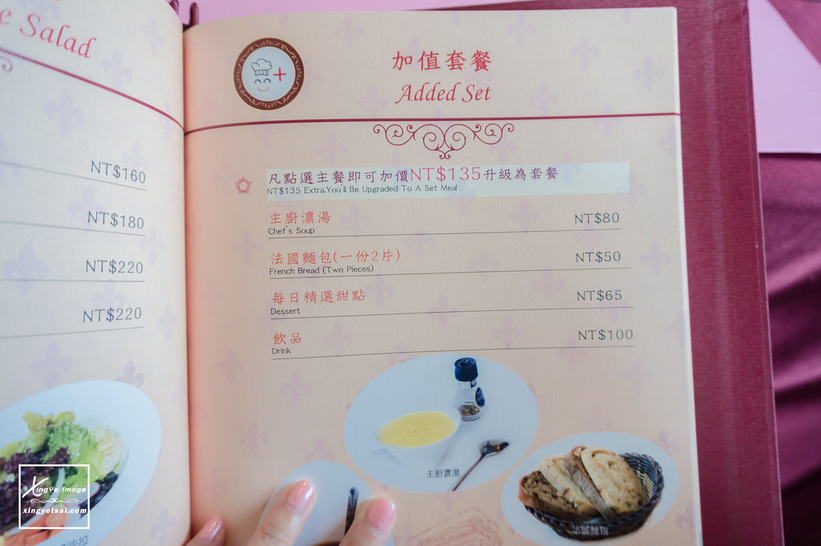 e Salad
NT$160
NT$180
NT$220
NT$220
加值套餐
Added Set
凡點選主餐即可加價NT$135升級為套餐
NT$135 Extra,You'll Be Upgraded To A Set Meal
主廚濃湯 NT$80
Chef's Soup
法國麵包(一份2片) NT$50
French Bread (Two Pieces)
每日精選甜點 NT$65
Dessert
飲品 NT$100
Drink
主廚濃湯
法國麵包
XingYe Image
xingyetsai.com